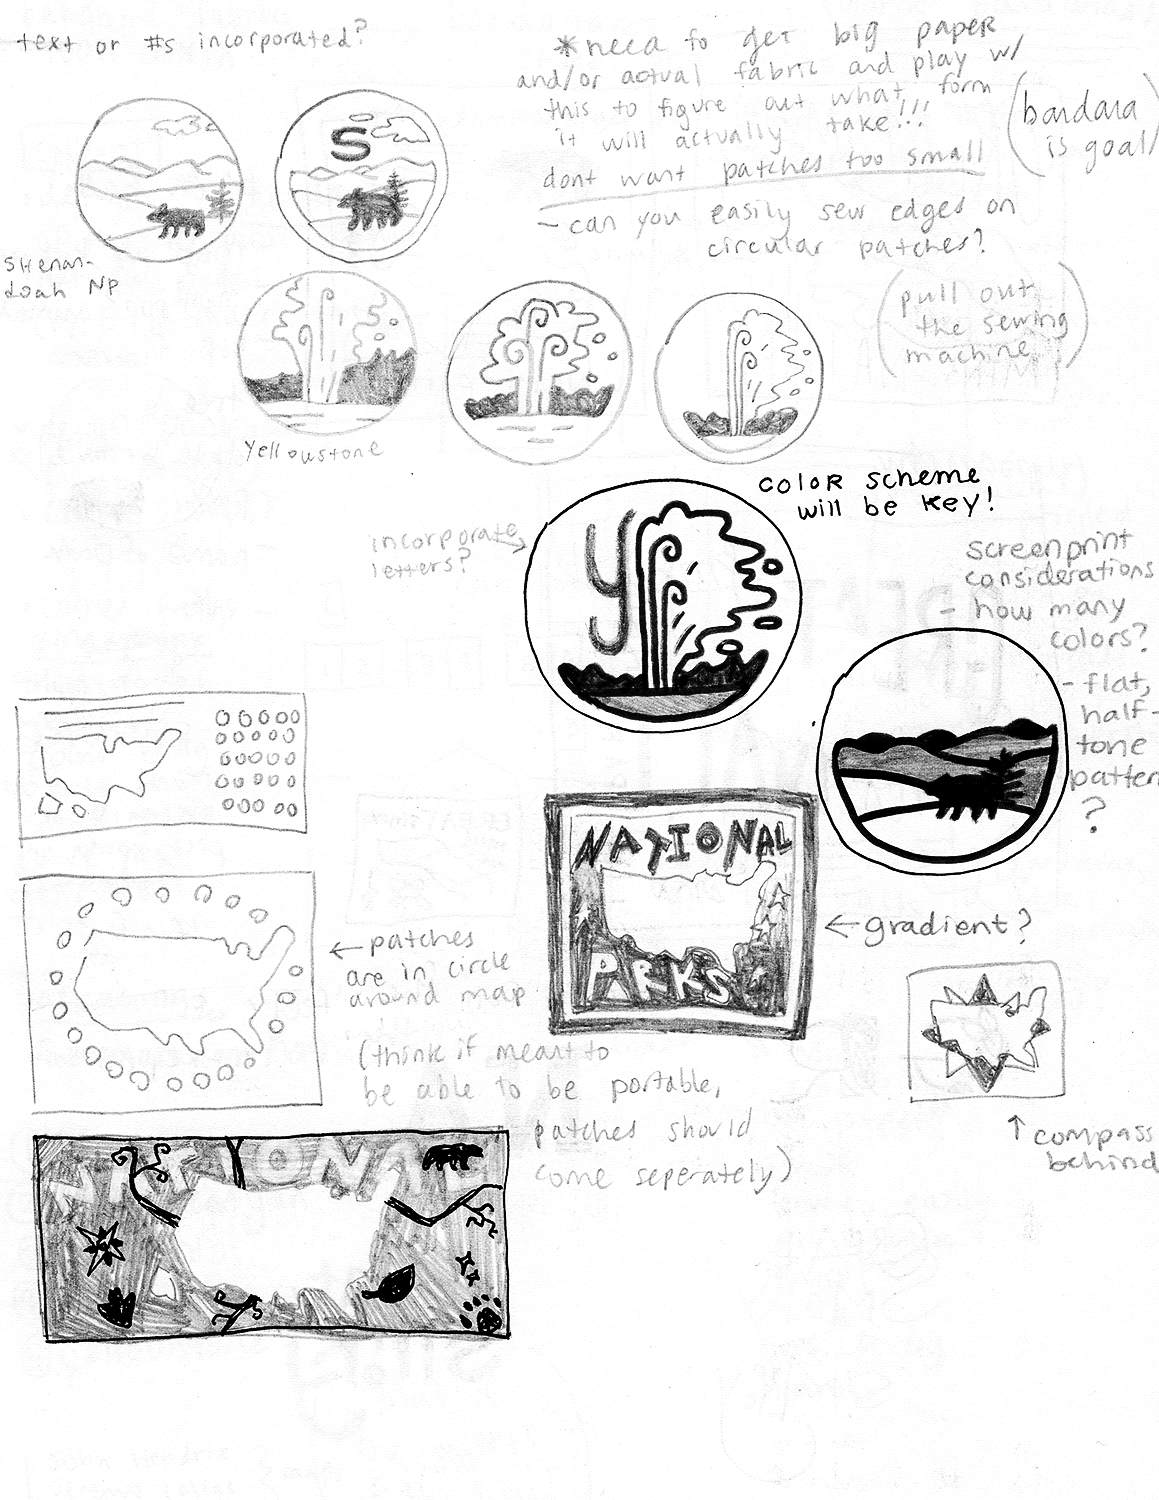 text or #s incorporated?
*need to get big paper
and/or actual fabric and play w/
this to figure out what form
it will actually take!!!
(bandana
is goal)
dont want patches too small
- can you easily sew edges on
circular patches?
S
Shenan-
doah NP
(pull out
the sewing
machine)
Yellowstone
color scheme
will be key!
incorporate
letters?
y
screenprint
considerations
- how many
colors?
- flat,
half-
tone
patter
?
NATIONAL
PARKS
← gradient?
← patches
are in circle
around map
(think if meant to
be able to be portable,
patches should
come seperately)
↑ compass
behind
NATIONAL